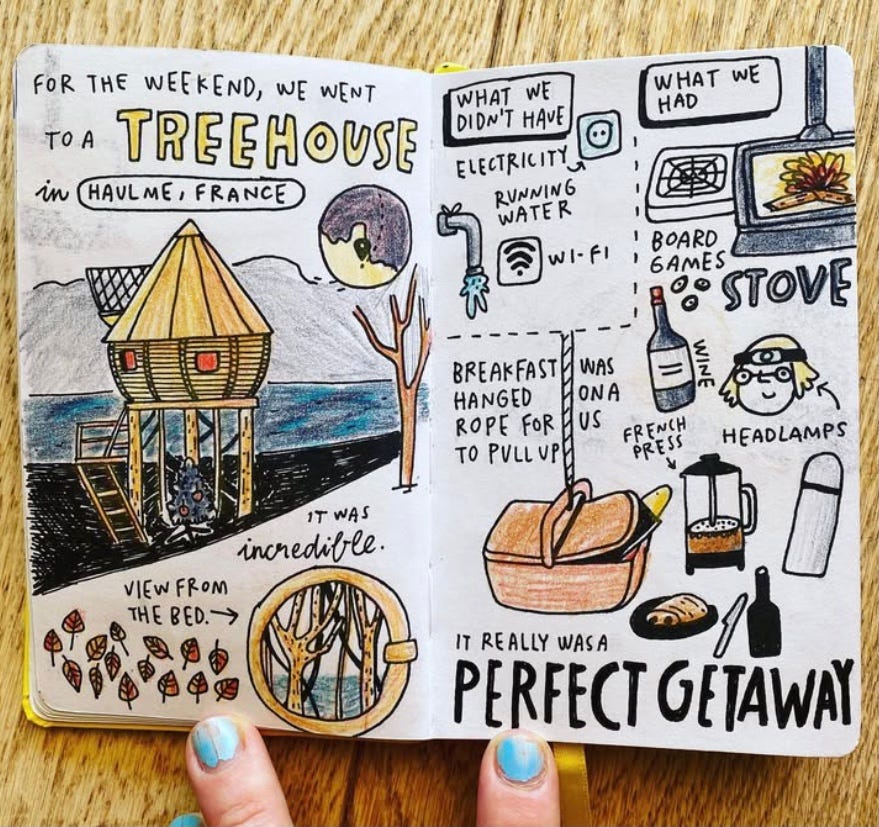 FOR THE WEEKEND, WE WENT
TO A TREEHOUSE
in HAULME, FRANCE
IT WAS
incredible.
VIEW FROM
THE BED.
WHAT WE
DIDN'T HAVE
ELECTRICITY
RUNNING
WATER
WI-FI
WHAT WE
HAD
BOARD
GAMES
STOVE
WINE
FRENCH
PRESS
HEADLAMPS
BREAKFAST WAS
HANGED ON A
ROPE FOR US
TO PULL UP
IT REALLY WAS A
PERFECT GETAWAY